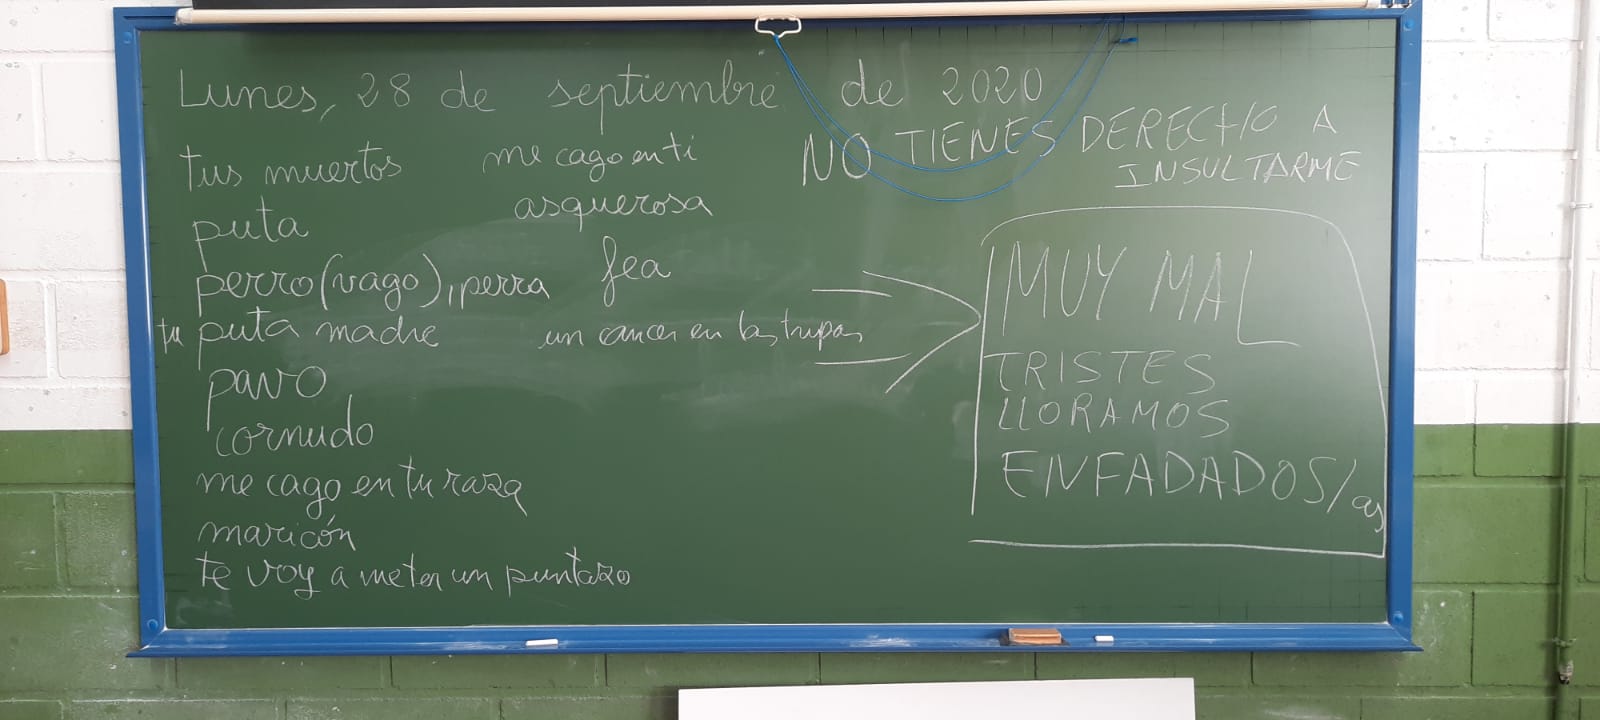 Lunes, 28 de septiembre de 2020
NO TIENES DERECHO A
INSULTARME
tus muertos
puta
perro (vago), perra
tu puta madre
pavo
cornudo
me cago en tu raza
maricón
te voy a meter un puntazo
me cago en ti
asquerosa
fea
un cancer en las tripas
MUY MAL
TRISTES
LLORAMOS
ENFADADOS/as